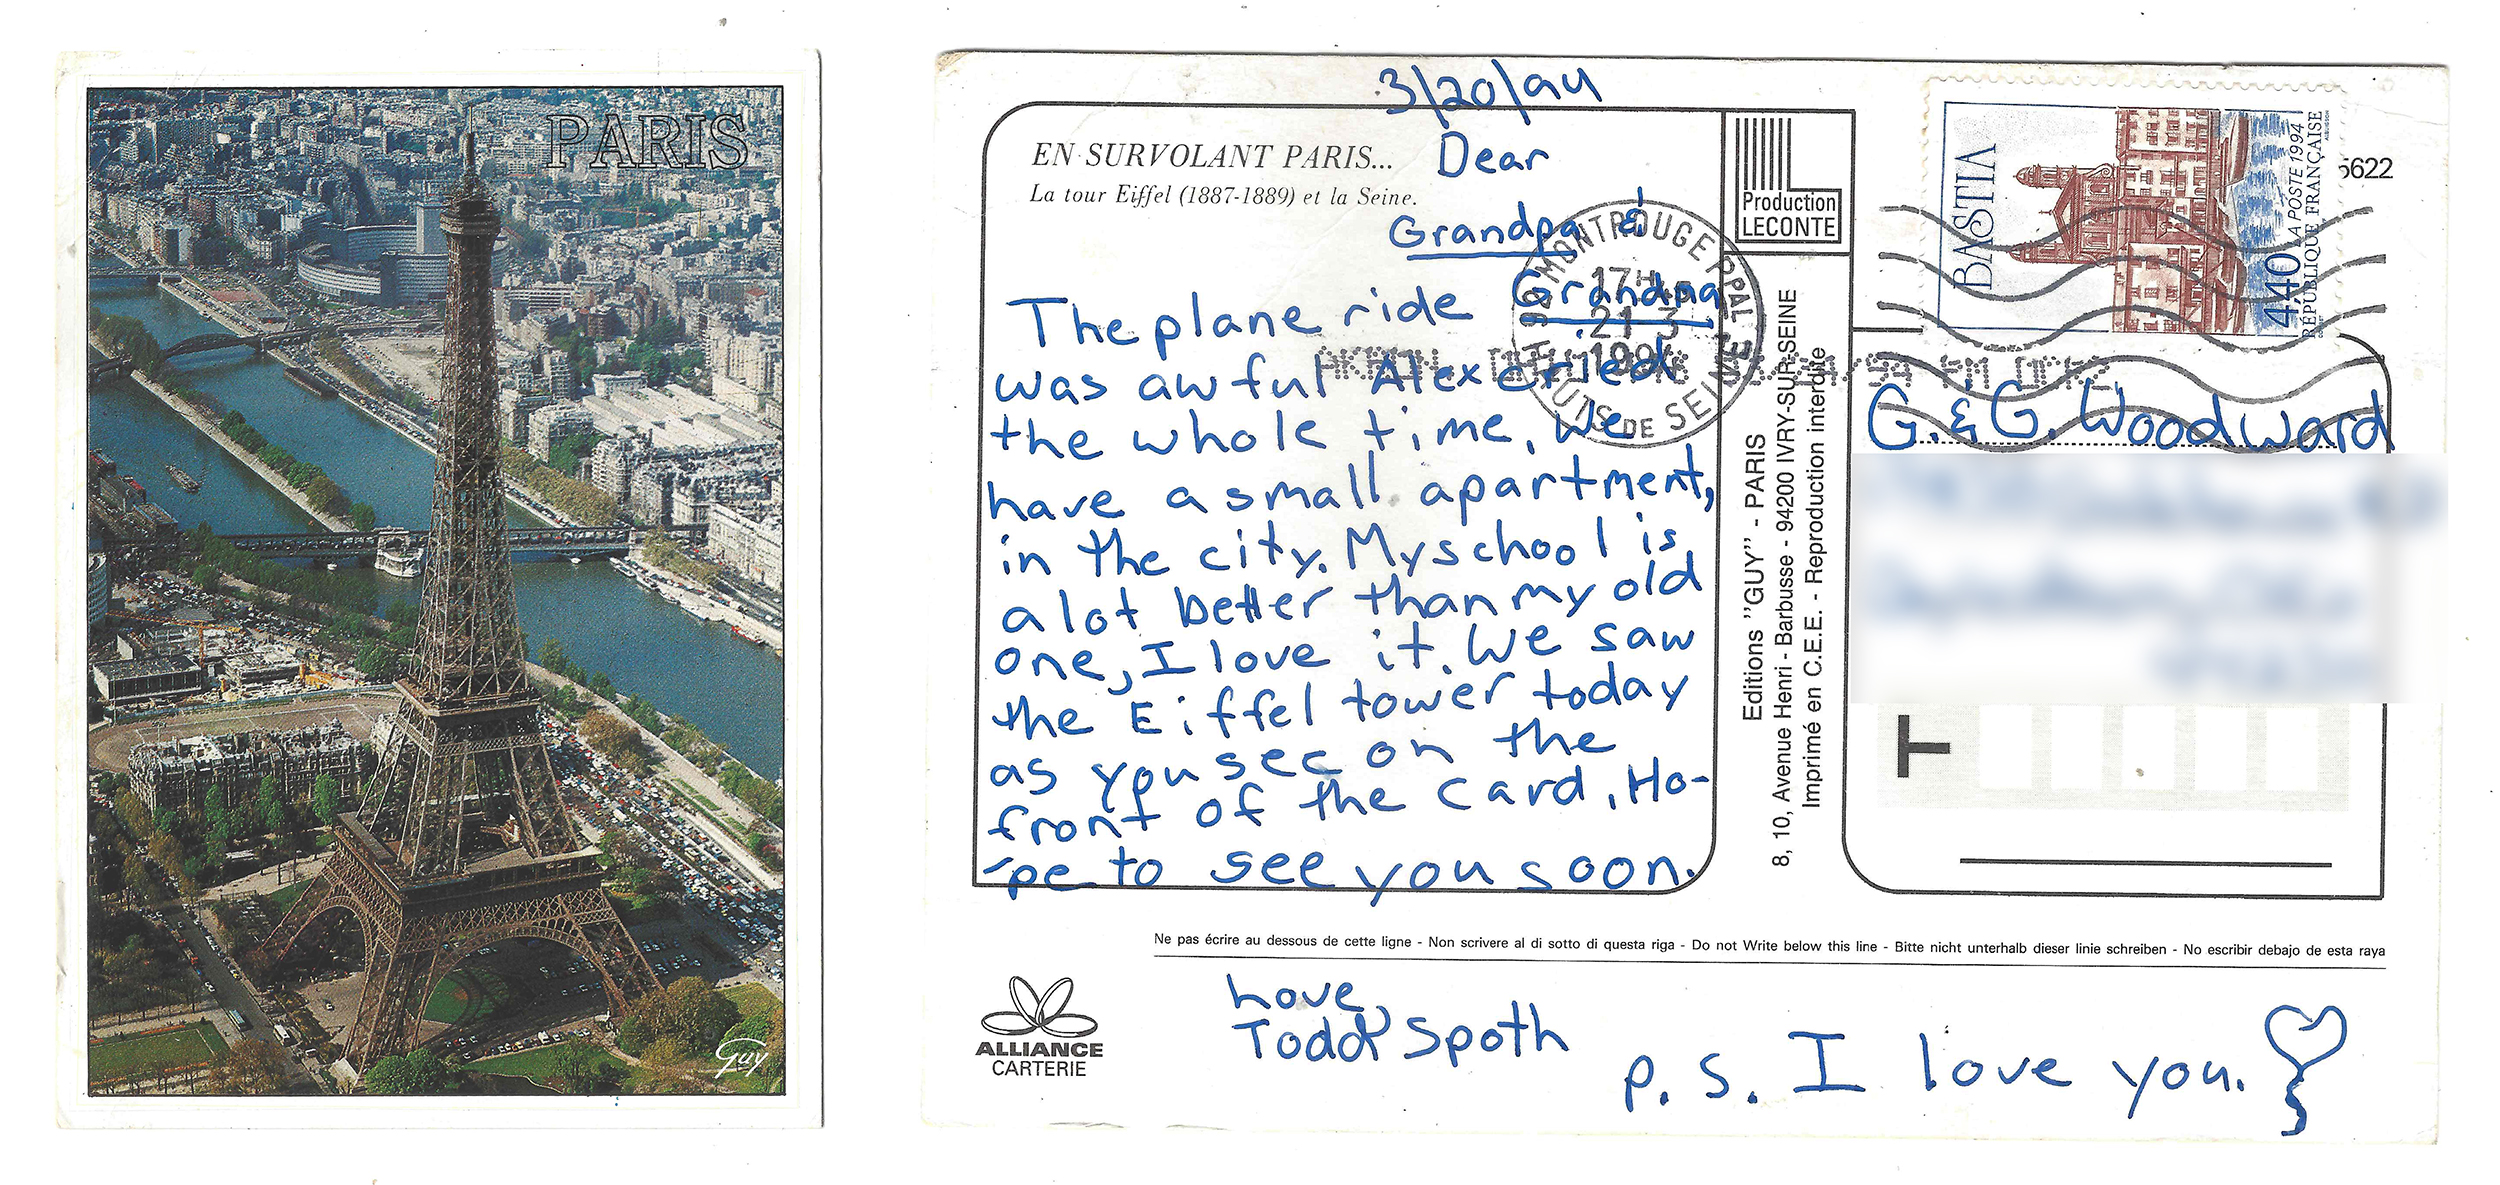 PARIS
Guy
3/20/94
EN SURVOLANT PARIS...
La tour Eiffel (1887-1889) et la Seine.
Dear
Grandpa &
Grandpa
The plane ride
was awful Alex cried
the whole time, We
have a small apartment,
in the city. My school is
a lot better than my old
one, I love it. We saw
the Eiffel tower today
as you see on the
front of the card. Ho-
-pe to see you soon.
Production
LECONTE
MONTROUGE PPAL
17H
21-3
1994
HAUTS DE SEINE
Editions "GUY" - PARIS
8, 10, Avenue Henri - Barbusse - 94200 IVRY-SUR-SEINE
Imprimé en C.E.E. - Reproduction interdite
BASTIA
4,40
LA POSTE 1994
RÉPUBLIQUE FRANÇAISE
5622
G. & G. Woodward
T
Ne pas écrire au dessous de cette ligne - Non scrivere al di sotto di questa riga - Do not Write below this line - Bitte nicht unterhalb dieser linie schreiben - No escribir debajo de esta raya
ALLIANCE
CARTERIE
Love,
Todd Spoth
P. S. I love you.